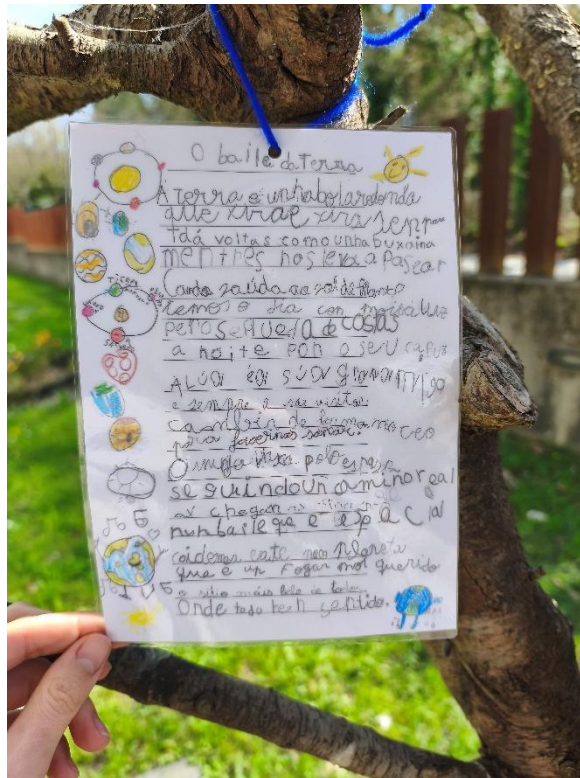 O baile da terra
A terra é unha bola redonda
que xira e xira sen
dá voltas como unha buxaina
mentres nos leva a pasear
Cando saúda ao sol de fronte
temos o día con moita luz
pero se queda de costas
a noite pon o seu capuz
A Lúa é a súa gran amiga
e sempre a vai visitar
cambia de forma no ceo
para facernos soñar.
O viaxa polo espazo
seguindo un camiño real
as chegan
nun baile que é espacial
coidemos este noso planeta
que é un fogar moi querido
o sitio máis belo de todos
Onde todo ten sentido.